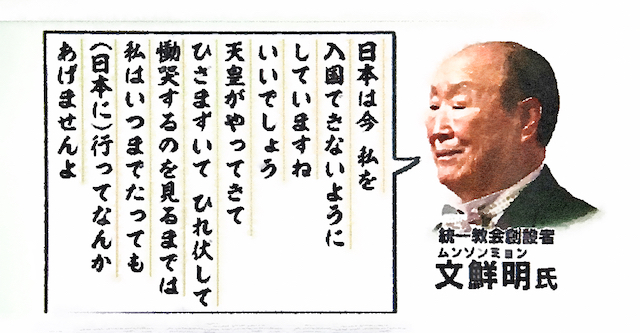 日本は今 私を
入国できないように
していますね
いいでしょう
天皇がやってきて
ひざまずいて ひれ伏して
慟哭するのを見るまでは
私はいつまでたっても
(日本に)行ってなんか
あげませんよ
統一教会創設者
ムンソンミョン
文鮮明氏